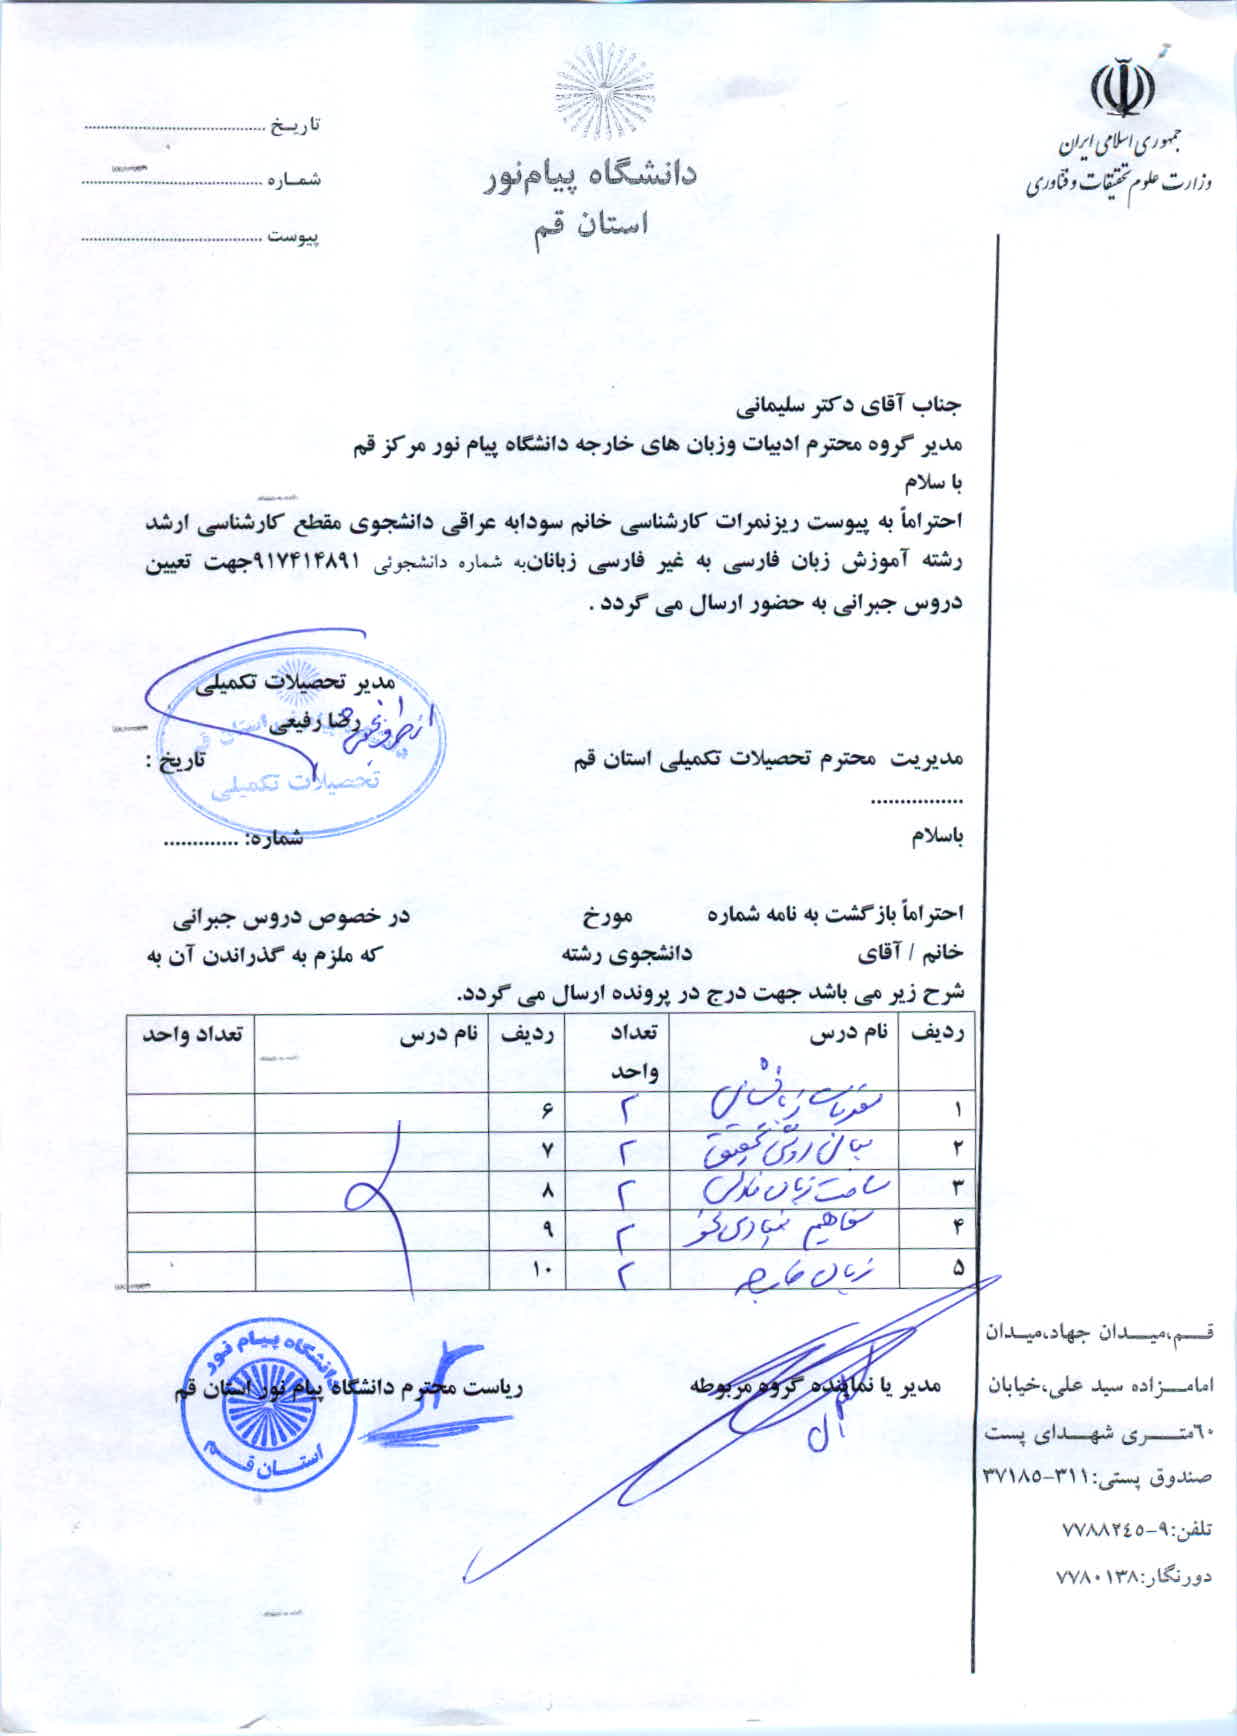 جمهوری اسلامی ایران
وزارت علوم تحقیقات و فناوری
دانشگاه پیام‌نور
استان قم
تاریـخ ............................
شمـاره ............................
پیوست ............................
جناب آقای دکتر سلیمانی
مدیر گروه محترم ادبیات وزبان های خارجه دانشگاه پیام نور مرکز قم
با سلام
احتراماً به پیوست ریزنمرات کارشناسی خانم سودابه عراقی دانشجوی مقطع کارشناسی ارشد
رشته آموزش زبان فارسی به غیر فارسی زبانان‌به شماره دانشجوئی ۹۱۷۴۱۴۸۹۱جهت تعیین
دروس جبرانی به حضور ارسال می گردد .
مدیر تحصیلات تکمیلی
رضا رفیعی
از طرف
تحصیلات تکمیلی
مدیریت محترم تحصیلات تکمیلی استان قم
تاریخ :
................
باسلام
شماره: .............
احتراماً بازگشت به نامه شماره مورخ در خصوص دروس جبرانی
خانم / آقای دانشجوی رشته که ملزم به گذراندن آن به
شرح زیر می باشد جهت درج در پرونده ارسال می گردد.
ردیف نام درس تعداد واحد ردیف نام درس تعداد واحد
۱ ۲ ۶
۲ مبانی روش تحقیق ۲ ۷
۳ ساخت زبان فارسی ۲ ۸
۴ مفاهیم بنیادی نحو ۲ ۹
۵ زبان خارجه ۲ ۱۰
مدیر یا نماینده گروه مربوطه
ریاست محترم دانشگاه پیام نور استان قم
دانشگاه پیام نور
استـان قـم
قـم،میـدان جهاد،میدان
امامـزاده سید علی،خیابان
٦٠متـری شهـدای پست
صندوق پستی:۳۱۱-۳۷۱۸۵
تلفن:۹-۷۷۸۸۲٤۵
دورنگار:۷۷۸۰۱۳۸